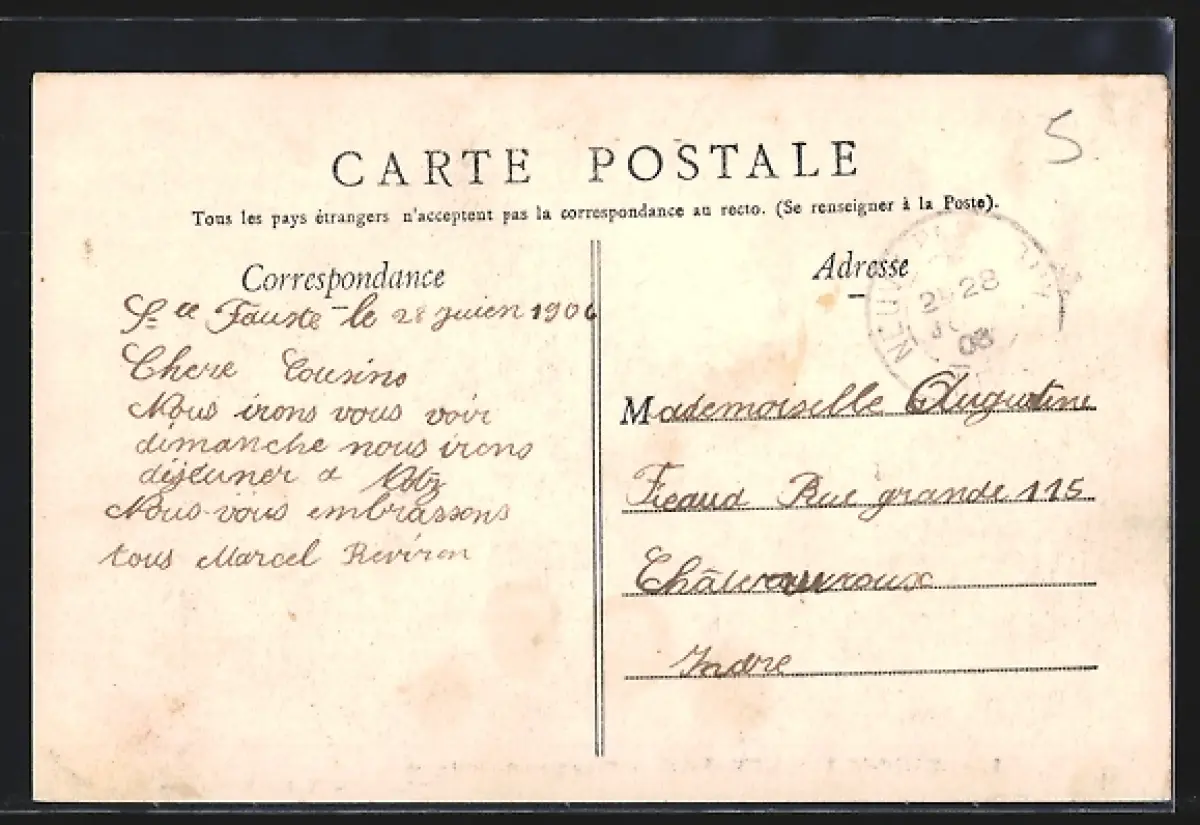 5
CARTE POSTALE
Tous les pays étrangers n'acceptent pas la correspondance au recto. (Se renseigner à la Poste).
Correspondance
Ste Fauste le 28 juien 1906
Chere Cousine
Nous irons vous voir
dimanche nous irons
dejeuner a
Nous vous embrassons
tous Marcel Reviron
Adresse
28
08
Mademoiselle Augustine
Ficaud Rue grande 115
Châteauroux
Indre